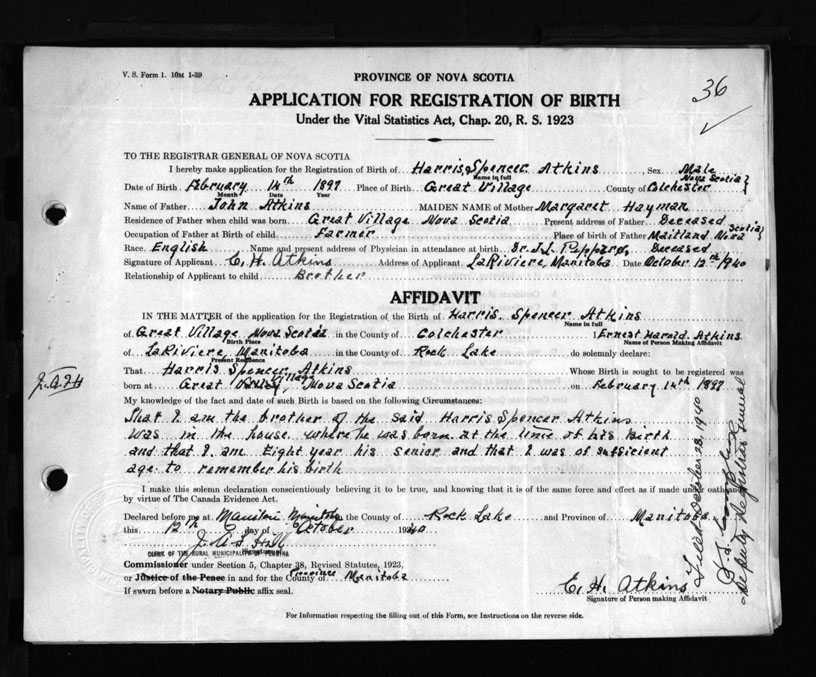 V. S. Form 1. 10M 1-39
36
PROVINCE OF NOVA SCOTIA
APPLICATION FOR REGISTRATION OF BIRTH
Under the Vital Statistics Act, Chap. 20, R. S. 1923
TO THE REGISTRAR GENERAL OF NOVA SCOTIA
I hereby make application for the Registration of Birth of Harris Spencer Atkins, Sex Male
Name in full
Date of Birth February 14th 1897 Place of Birth Great Village County of Colchester Nova Scotia
Month Date Year
Name of Father John Atkins MAIDEN NAME of Mother Margaret Hayman
Residence of Father when child was born Great Village Nova Scotia Present address of Father Deceased
Occupation of Father at Birth of child Farmer Place of birth of Father Maitland Nova Scotia
Race English Name and present address of Physician in attendance at birth Dr. Deceased
Signature of Applicant C. H. Atkins Address of Applicant LaRiviere, Manitoba Date October 12th 1940
Relationship of Applicant to child Brother
AFFIDAVIT
IN THE MATTER of the application for the Registration of the Birth of Harris Spencer Atkins
Name in full
of Great Village Nova Scotia in the County of Colchester Ernest Harold Atkins
Birth Place Name of Person Making Affidavit
of LaRiviere, Manitoba in the County of Rock Lake do solemnly declare:
Present Residence
That Harris Spencer Atkins Whose Birth is sought to be registered was
born at Great Village, Nova Scotia on February 14th 1897
My knowledge of the fact and date of such Birth is based on the following Circumstances:
That I am the brother of the said Harris Spencer Atkins
Was in the house where he was born at the time of his Birth
and that I am Eight year his senior and that I was of sufficient
age to remember his birth
I make this solemn declaration conscientiously believing it to be true, and knowing that it is of the same force and effect as if made under oath and
by virtue of The Canada Evidence Act.
Declared before me at Manitou Manitoba in the County of Rock Lake and Province of Manitoba
this 12th day of October 1940
CLERK OF THE RURAL MUNICIPALITY OF PEMBINA
Signature
Commissioner under Section 5, Chapter 38, Revised Statutes, 1923,
or Justice of the Peace in and for the County Province of Manitoba
If sworn before a Notary Public affix seal.
C. H. Atkins
Signature of Person making Affidavit
For Information respecting the filling out of this Form, see Instructions on the reverse.
Filed October 23, 1940
Deputy Registrar General